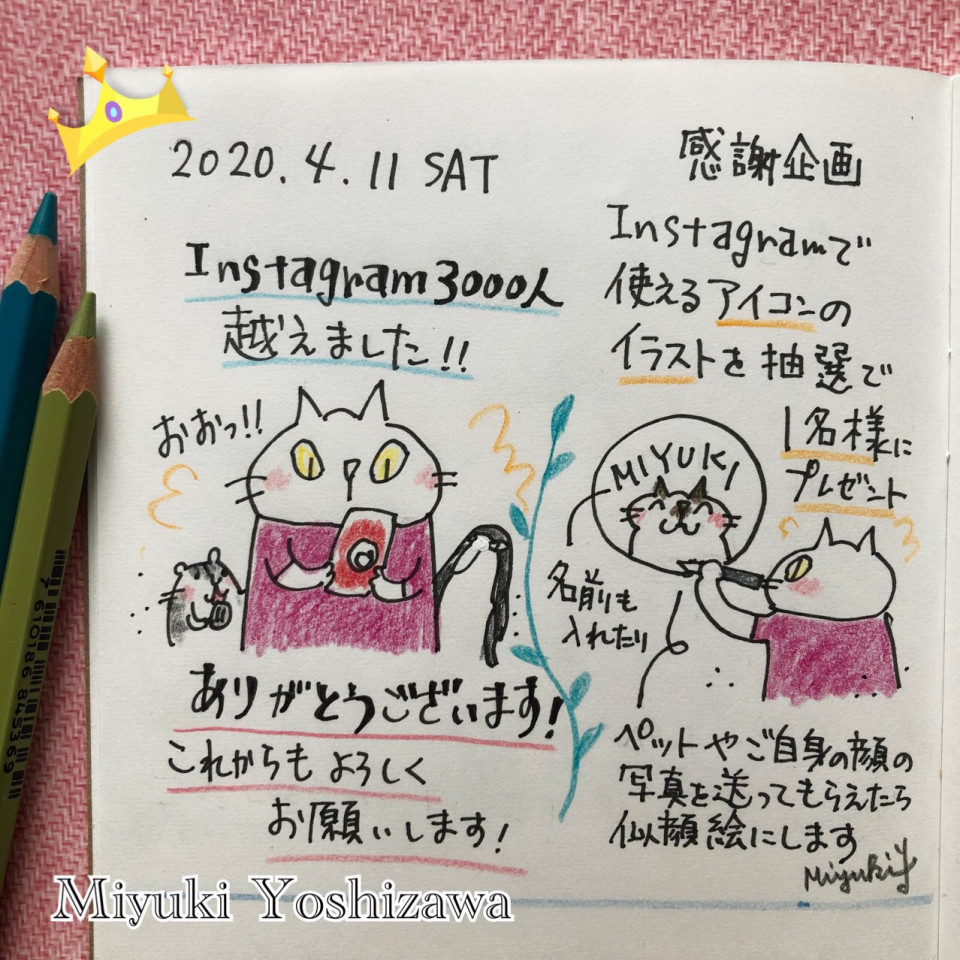 2020.4.11 SAT
Instagram3000人
越えました!!
おおっ!!
ありがとうございます!
これからもよろしく
お願いします!
感謝企画
Instagramで
使えるアイコンの
イラストを抽選で
1名様に
プレゼント
MIYUKI
名前も
入れたり
ペットやご自身の顔の
写真を送ってもらえたら
似顔絵にします
MiyukiY
Miyuki Yoshizawa
7 610186 845369